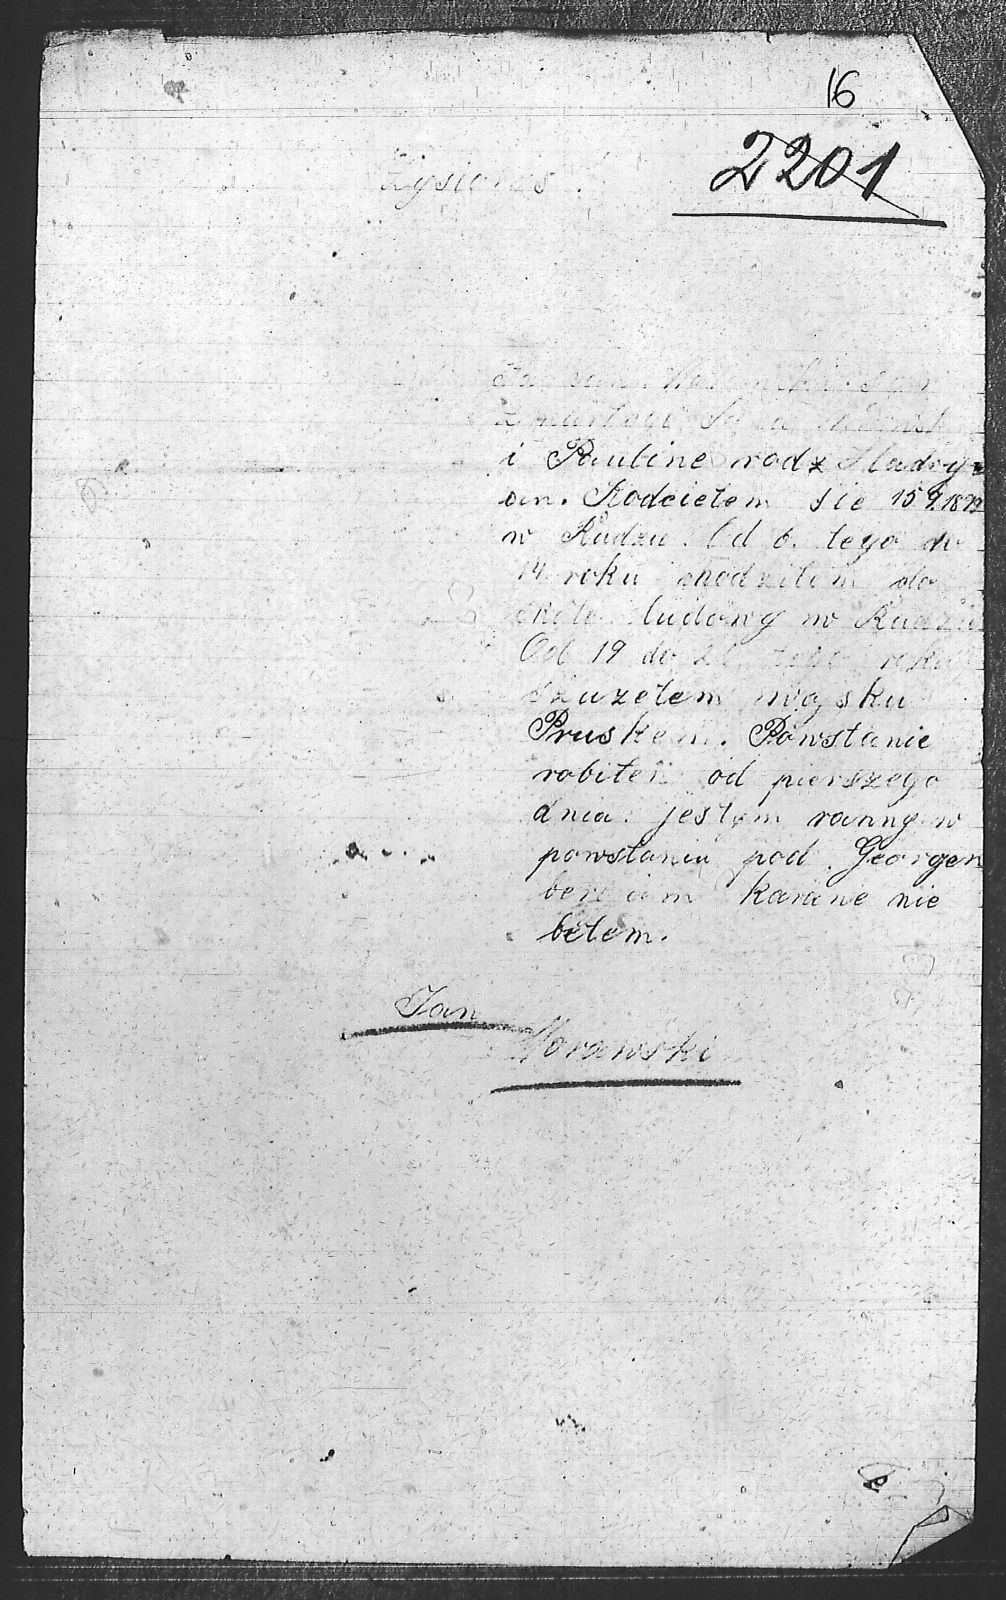 16
2201
Zysiorus
i Pauline rodz
Rodcietem sie 15 9. 1899
w Rudzu. Od 6. tego do
14 roku chodzitem do
ludowy w Rudziu
Od 19 do roku
szuzetem wojsku
Pruskem. Powstanie
robitem od pierszego
dnia. jestym ranny w
powstaniu pod Georgen
bergiem karane nie
betem.
Jan
Morawski